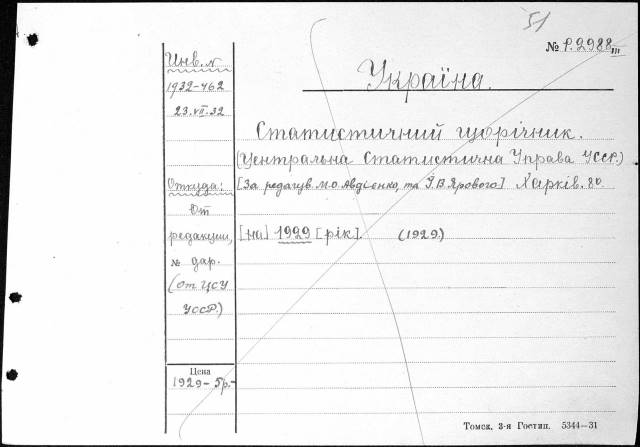 51
№ P.2988 III
Україна.
Инв. №
1932-462
23.VII.32
Статистичний щорічник.
(Центральна Статистична Управа УССР.)
Откуда:
[За редагув. М.О. Авдієнко, та І.В. Ярового] Харків. 8º.
От
редакции,
[на] 1929 [рік]. (1929.)
№ дар.
(от ЦСУ
УССР.)
Цена
1929- 5р.-
Томск, 3-я Гостип. 5344—31